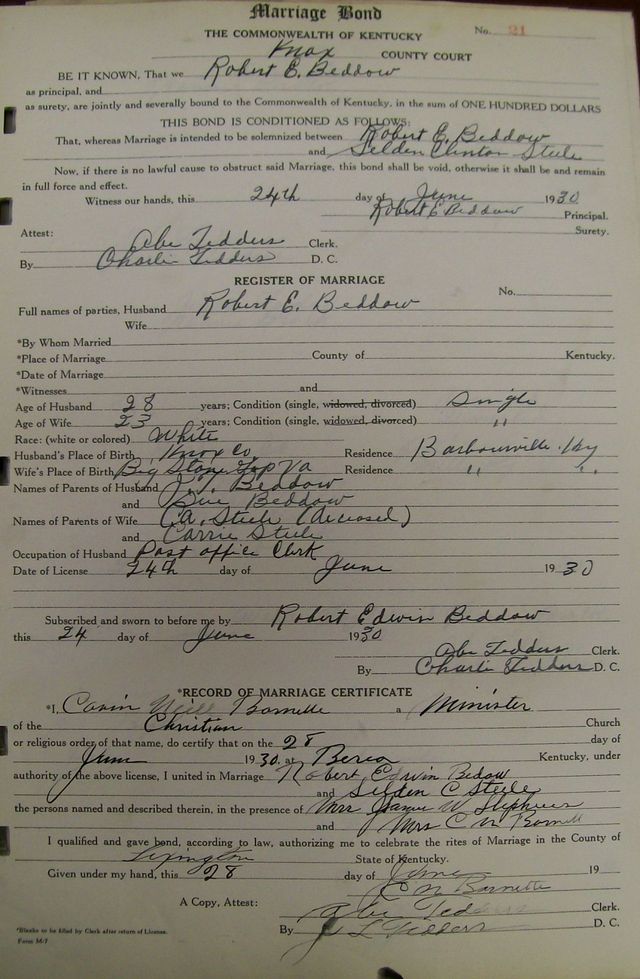 Marriage Bond
THE COMMONWEALTH OF KENTUCKY No. 21
Knox COUNTY COURT
BE IT KNOWN, That we Robert E. Beddow
as principal, and
as surety, are jointly and severally bound to the Commonwealth of Kentucky, in the sum of ONE HUNDRED DOLLARS
THIS BOND IS CONDITIONED AS FOLLOWS:
That, whereas Marriage is intended to be solemnized between Robert E. Beddow
and Selden Clinton Steele
Now, if there is no lawful cause to obstruct said Marriage, this bond shall be void, otherwise it shall be and remain
in full force and effect.
Witness our hands, this 24th day of June 1930
Robert E Beddow Principal.
Surety.
Attest: Abe Tedders Clerk.
By Charlie Tedders D. C.
REGISTER OF MARRIAGE
No.
Full names of parties, Husband Robert E. Beddow
Wife
*By Whom Married
*Place of Marriage County of Kentucky.
*Date of Marriage
*Witnesses and
Age of Husband 28 years; Condition (single, widowed, divorced) Single
Age of Wife 23 years; Condition (single, widowed, divorced) "
Race: (white or colored) White
Husband's Place of Birth Knox Co. Residence Barbourville Ky
Wife's Place of Birth Big Stone Gap Va Residence " "
Names of Parents of Husband J. Beddow
and Sue Beddow
Names of Parents of Wife C.A. Steele (deceased)
and Carrie Steele
Occupation of Husband Post office Clerk
Date of License 24th day of June 1930
Subscribed and sworn to before me by Robert Edwin Beddow
this 24 day of June 1930
Abe Tedders Clerk.
By Charlie Tedders D. C.
*RECORD OF MARRIAGE CERTIFICATE
*I, Neill Barnette a Minister
of the Christian Church
or religious order of that name, do certify that on the 28 day of
June 1930, at Berea Kentucky, under
authority of the above license, I united in Marriage Robert Edwin Bedow
and Selden C Steele
the persons named and described therein, in the presence of Mrs W Stephens
and Mrs C N Barnett
I qualified and gave bond, according to law, authorizing me to celebrate the rites of Marriage in the County of
Lexington State of Kentucky.
Given under my hand, this 28 day of June 19
C N Barnette
A Copy, Attest: Abe Tedders Clerk.
By J L Tedders D. C.
*Blanks to be filled by Clerk after return of License.
Form M-7